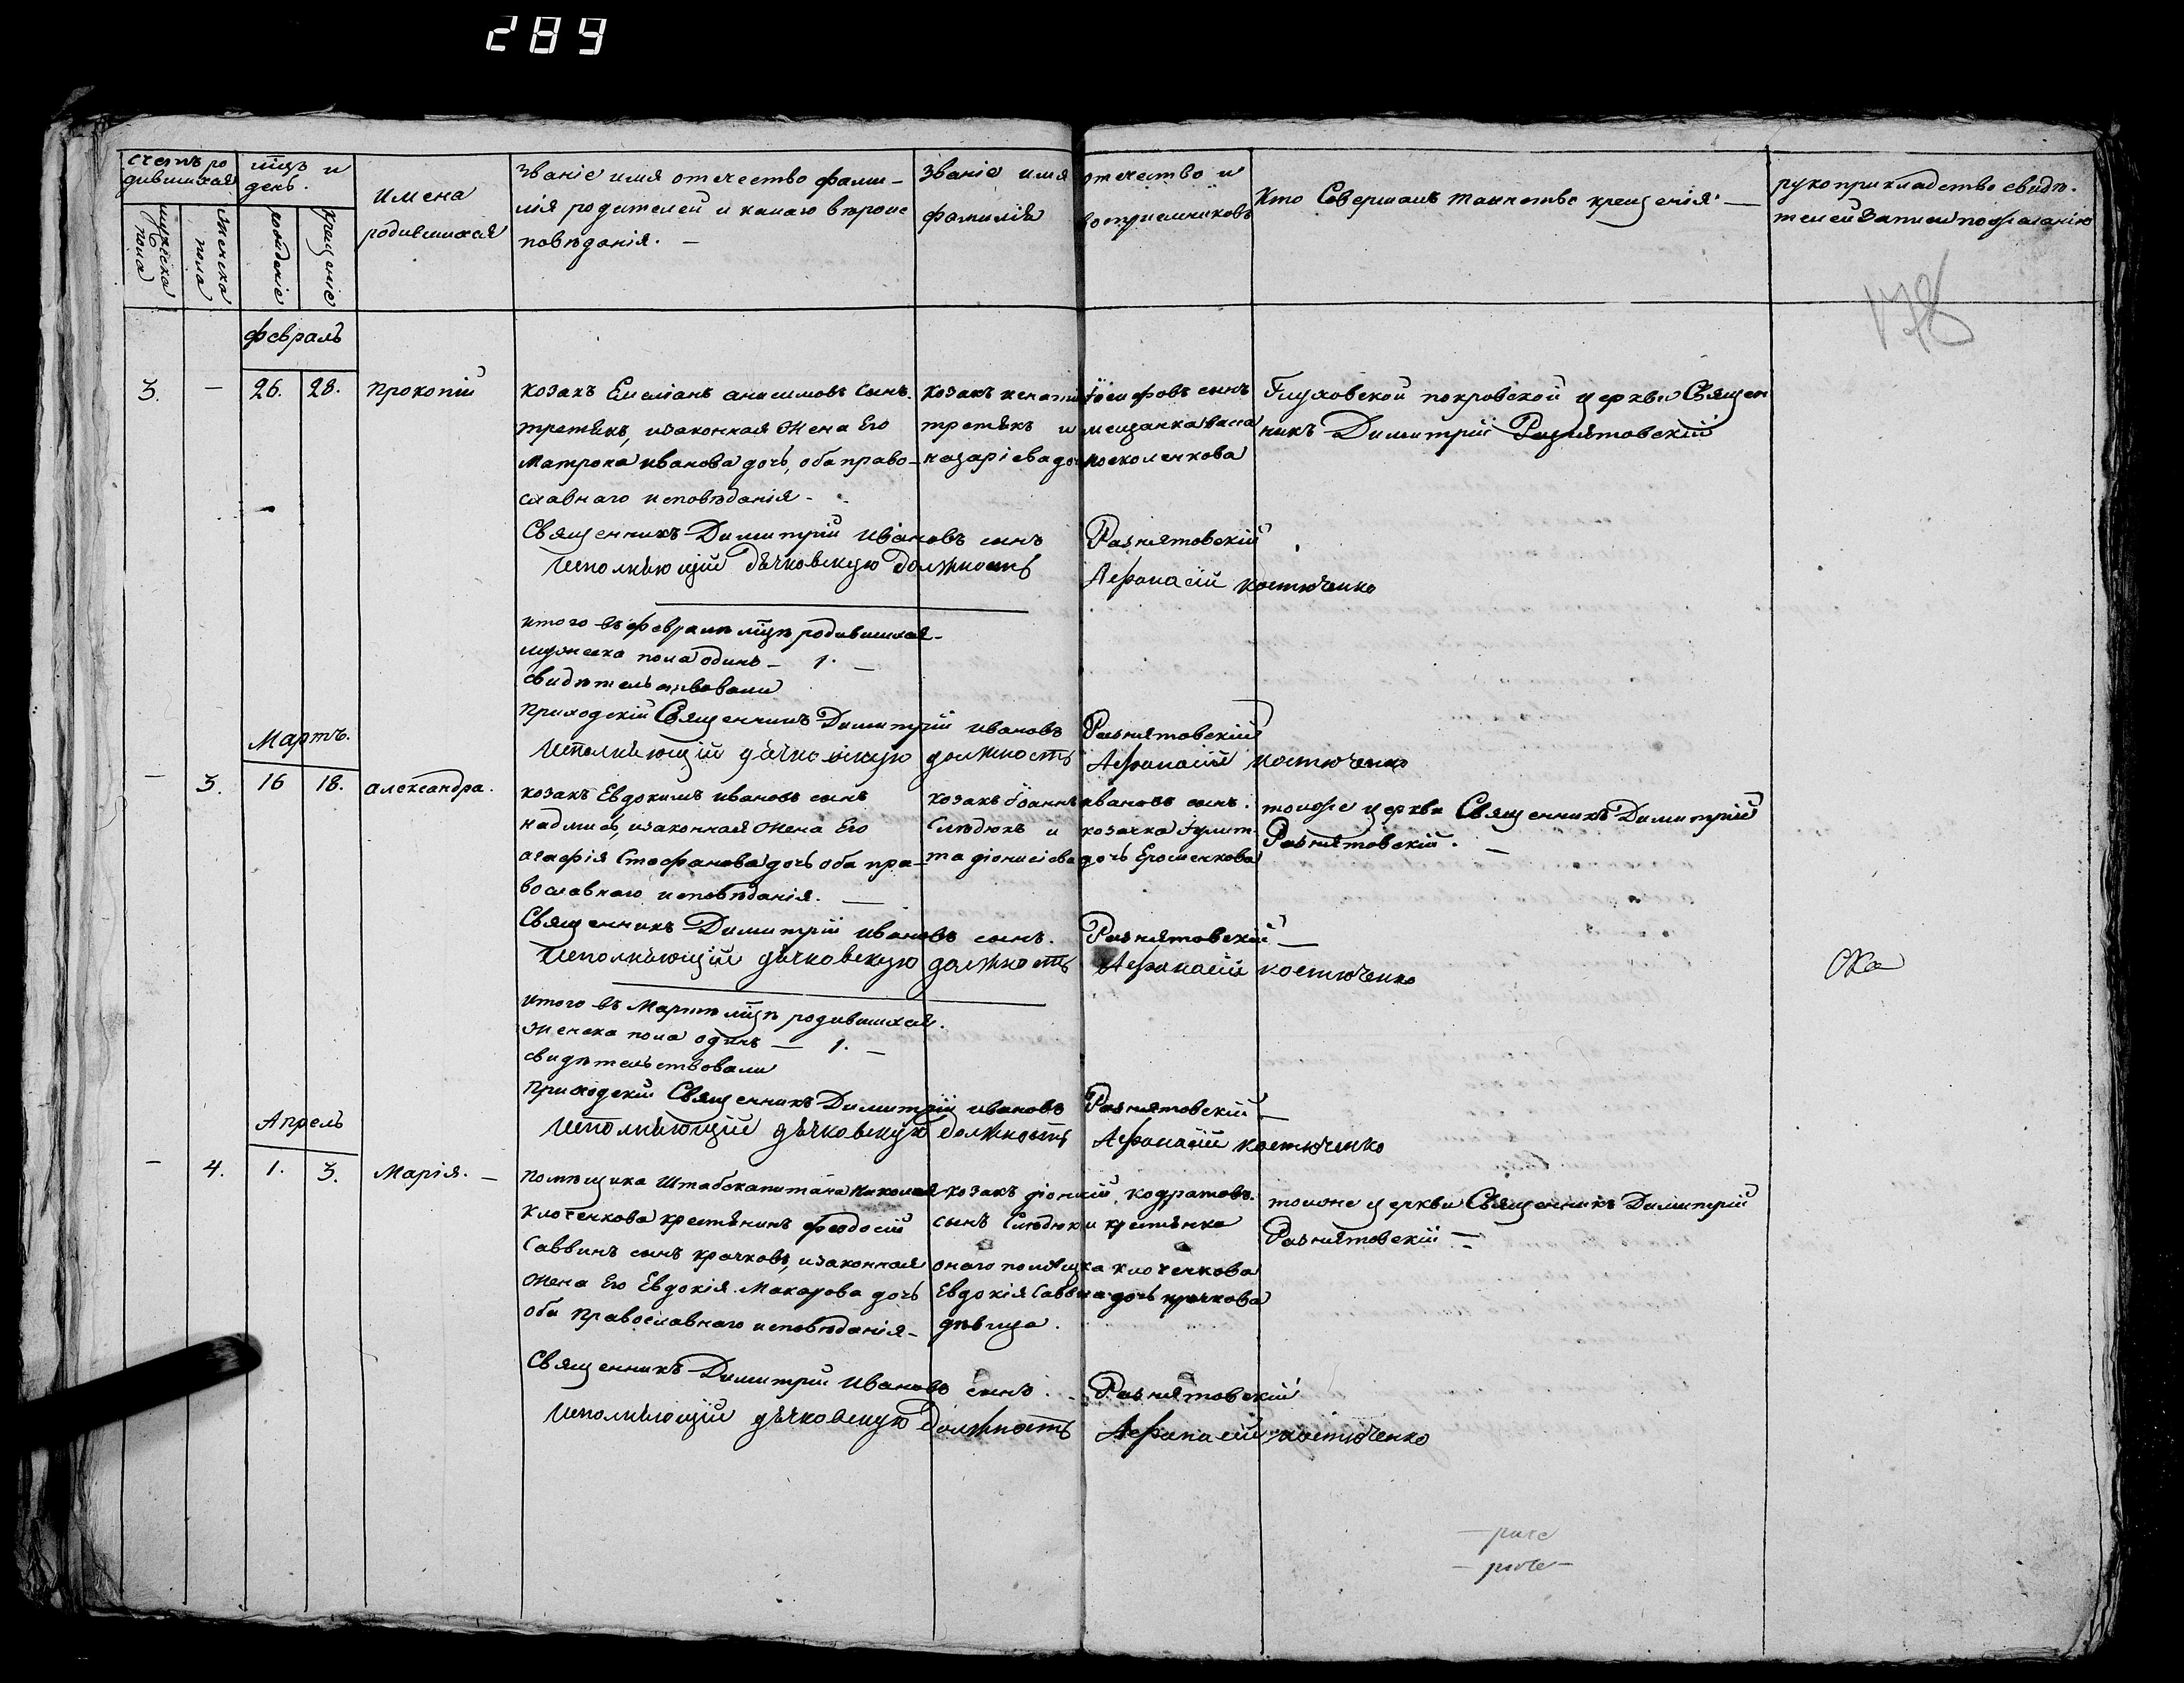 289
счетъ ро
дившихся
мужеска пола
женска пола
мцъ и
день.
рожденіе
крещеніе
имена
родившихся
званіе имя отечество фами–
лія родителей и какаго вѣроис
повѣданія. –
званіе имя отечество и
фамилія воспріемниковъ
кто совершалъ таинство крещенія. —
рукоприкладство свидѣ–
телей записи по желанію
178
февраль
3. – 26. 28. Прокопій
козакъ Емеліанъ анисимовъ сынъ.
третякъ, изаконная жена Его
Матрона иванова дочь, оба право–
славнаго исповѣданія –
козакъ игнатій іосифовъ сынъ
третякъ и мещанка васса
назаріева дочь москаленкова
Глуховской покровской церкви Священ
никъ Димитрій Разнятовскій
Священникъ Димитрій Ивановъ сынъ Разнятовскій
Исполняющій дячковскую должность Афанасій Костюченко
итого въ февралѣ мцѣ родившихся –
мужеска пола одинъ – 1. –
свидѣтельствовали
Приходскій Священникъ Димитрій Ивановъ Разнятовскій
Исполняющій дячковскую должность Афанасій Костюченко
Мартъ.
– 3. 16 18. александра.
козакъ Евдокимъ ивановъ сынъ
, изаконная жена Его
агафія Стефанова дочь оба пра–
вославнаго исповѣданія. —
козакъ іоаннъ ивановъ сынъ.
Слѣдюкъ и козачка іулит–
та діонисіева дочь Ерошенкова
тоиже церкви Священникъ Димитрій
Разнятовскій. —
Священникъ Димитрій Ивановъ сынъ. Разнятовскій —
Исполняющій дячковскую должность Афанасій Костюченко
итого въ Мартѣ мцѣ родившихся.
женска пола одинъ — 1. –
свидѣтельствовали
Приходскій Священникъ Димитрій Ивановъ Разнятовскій —
Исполняющій дячковскую должность Афанасій Костюченко
Апрель
– 4. 1. 3. Марія. –
помѣщика Штабскапитана Николая
клоченкова крестянинъ феодосій
Саввинъ сынъ крачковъ, изаконная
жена Его Евдокія Макарова дочь
оба Православнаго исповѣданія –
козакъ діонисій кодратовъ
сынъ Слѣдюкъ и крестянка
онаго помѣщика клоченкова
Евдокія Саввина дочь крачкова
дѣвица.
тоиже церкви Священникъ Димитрій
Разнятовскій —
Священникъ Димитрій Ивановъ сынъ. Разнятовскій
Исполняющій дячковскую должность Афанасій Костюченко